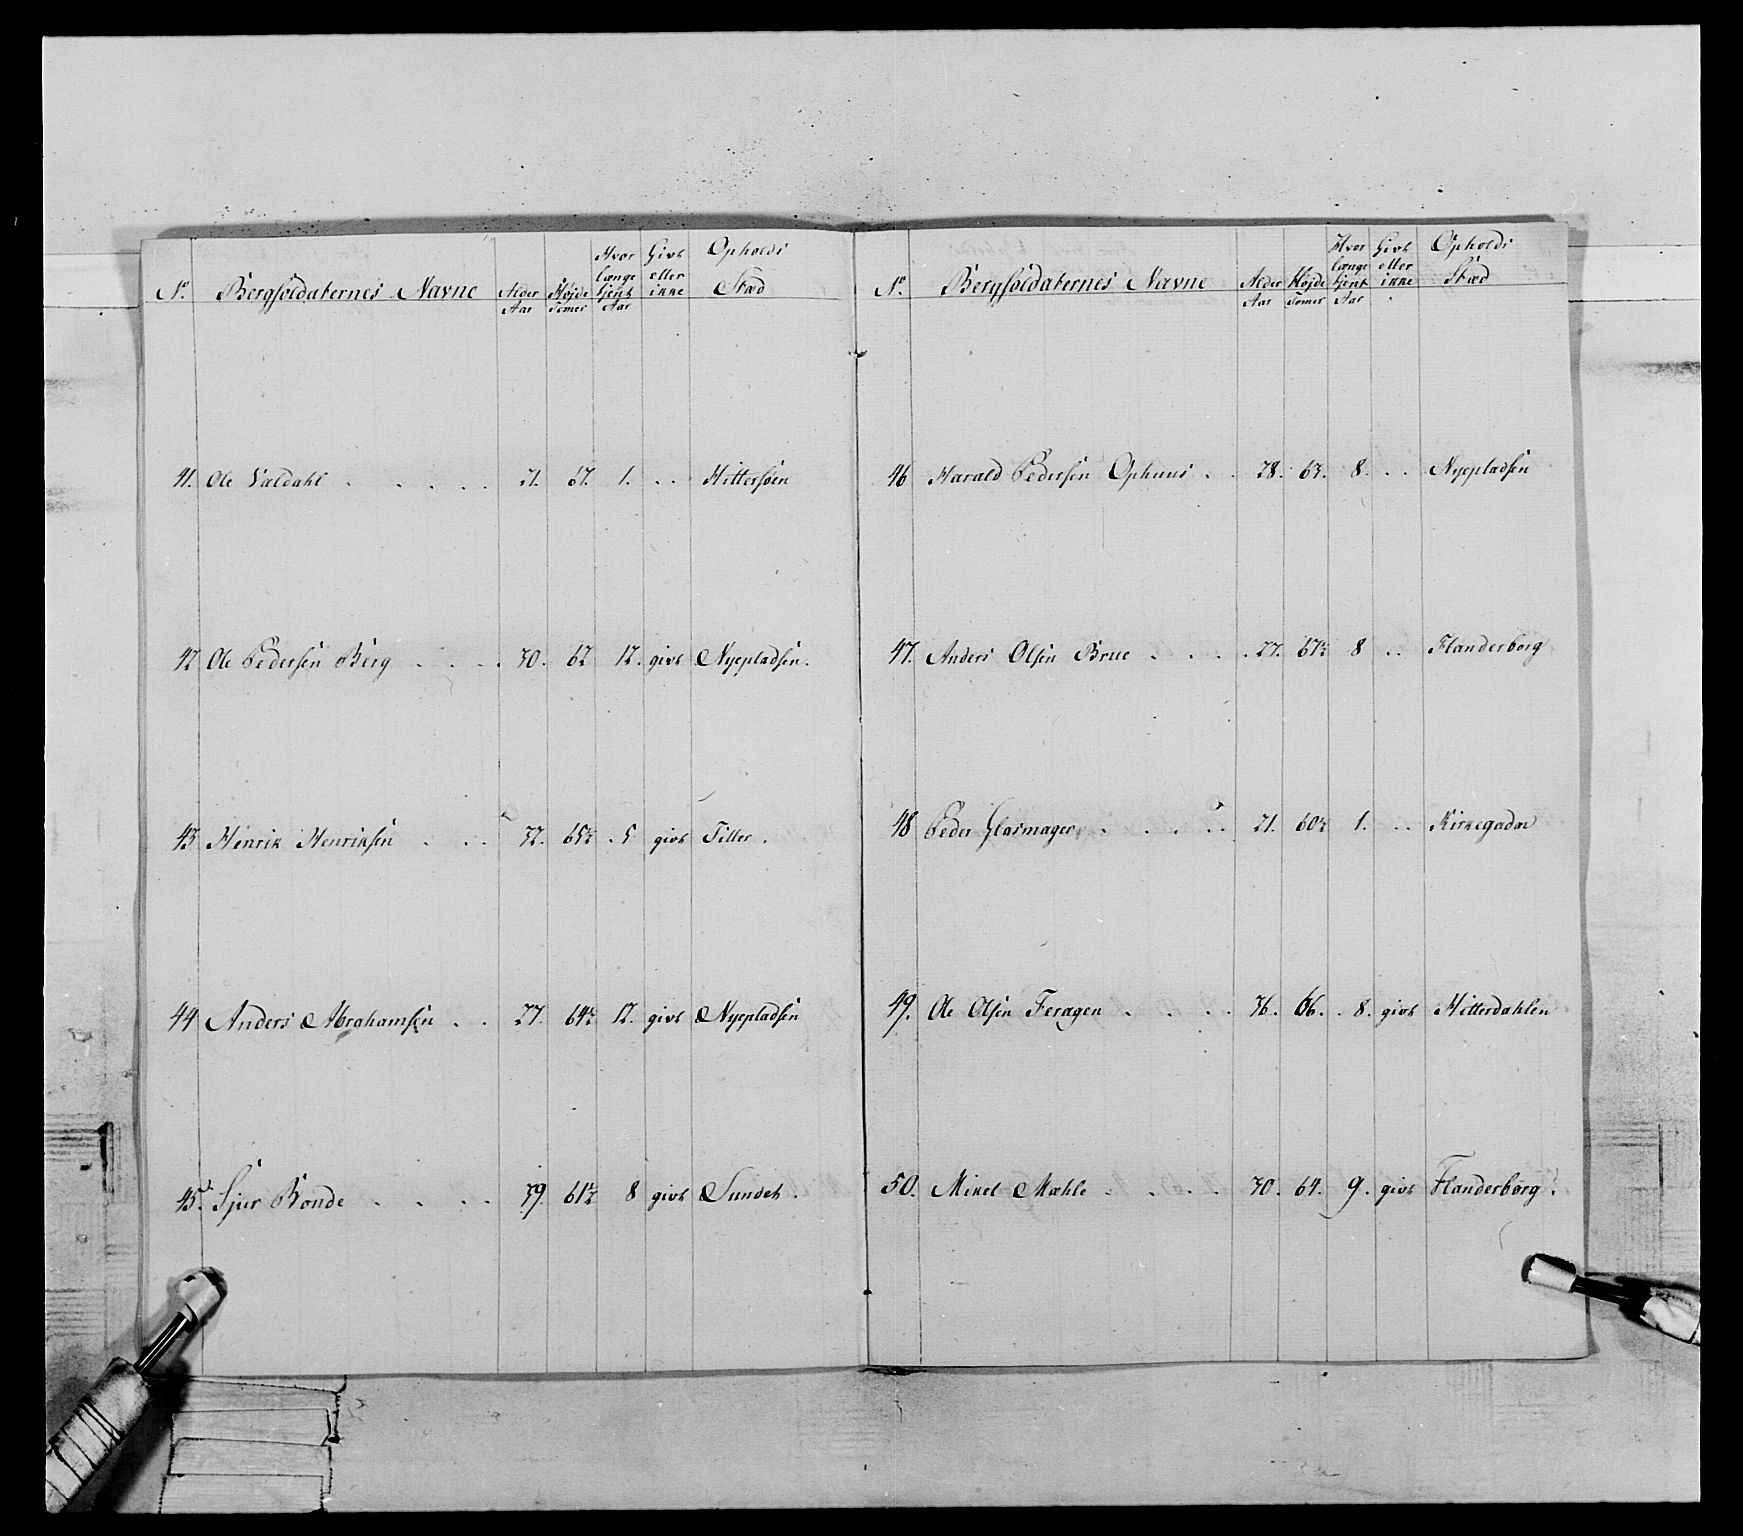 No. Bergsoldaternes Navne Alder Aar Højde Tomer Hvor længe tjent Aar Givt eller ikke Opholds Stæd
41. Ole Valdahl . . . . . 21. 67. 1. . . Hittersøen
42 Ole Pedersen Berg . . . . 30. 62 12. givt Nyepladsen.
43 Henrik Henriksen . . . 32. 65½ . 5 givt Tiller.
44 Anders Abrahamsen . . 37. 64½ 12. givt Nyepladsen
45. Sjur Bonde . . . . 39. 61½ 8 givt Sundet.
No. Bergsoldaternes Navne Alder Aar Højde Tomer Hvor længe tjent Aar Givt eller ikke Opholds Stæd
46 Harald Pedersen Ophuus . . 28. 63. 8. . . Nyepladsen
47. Anders Olsen Brue . . . . 27. 67½ 8 . . Flanderborg
48 Peder Glasmager. . . . . . 21. 60½ 1. . . Kirkegaden
49. Ole Olsen Feragen . . . . 36. 66. . 8. givt Hitterdahlen
50. Mikel Mæhle . . . . 30. 64. 9. givt Flanderborg.